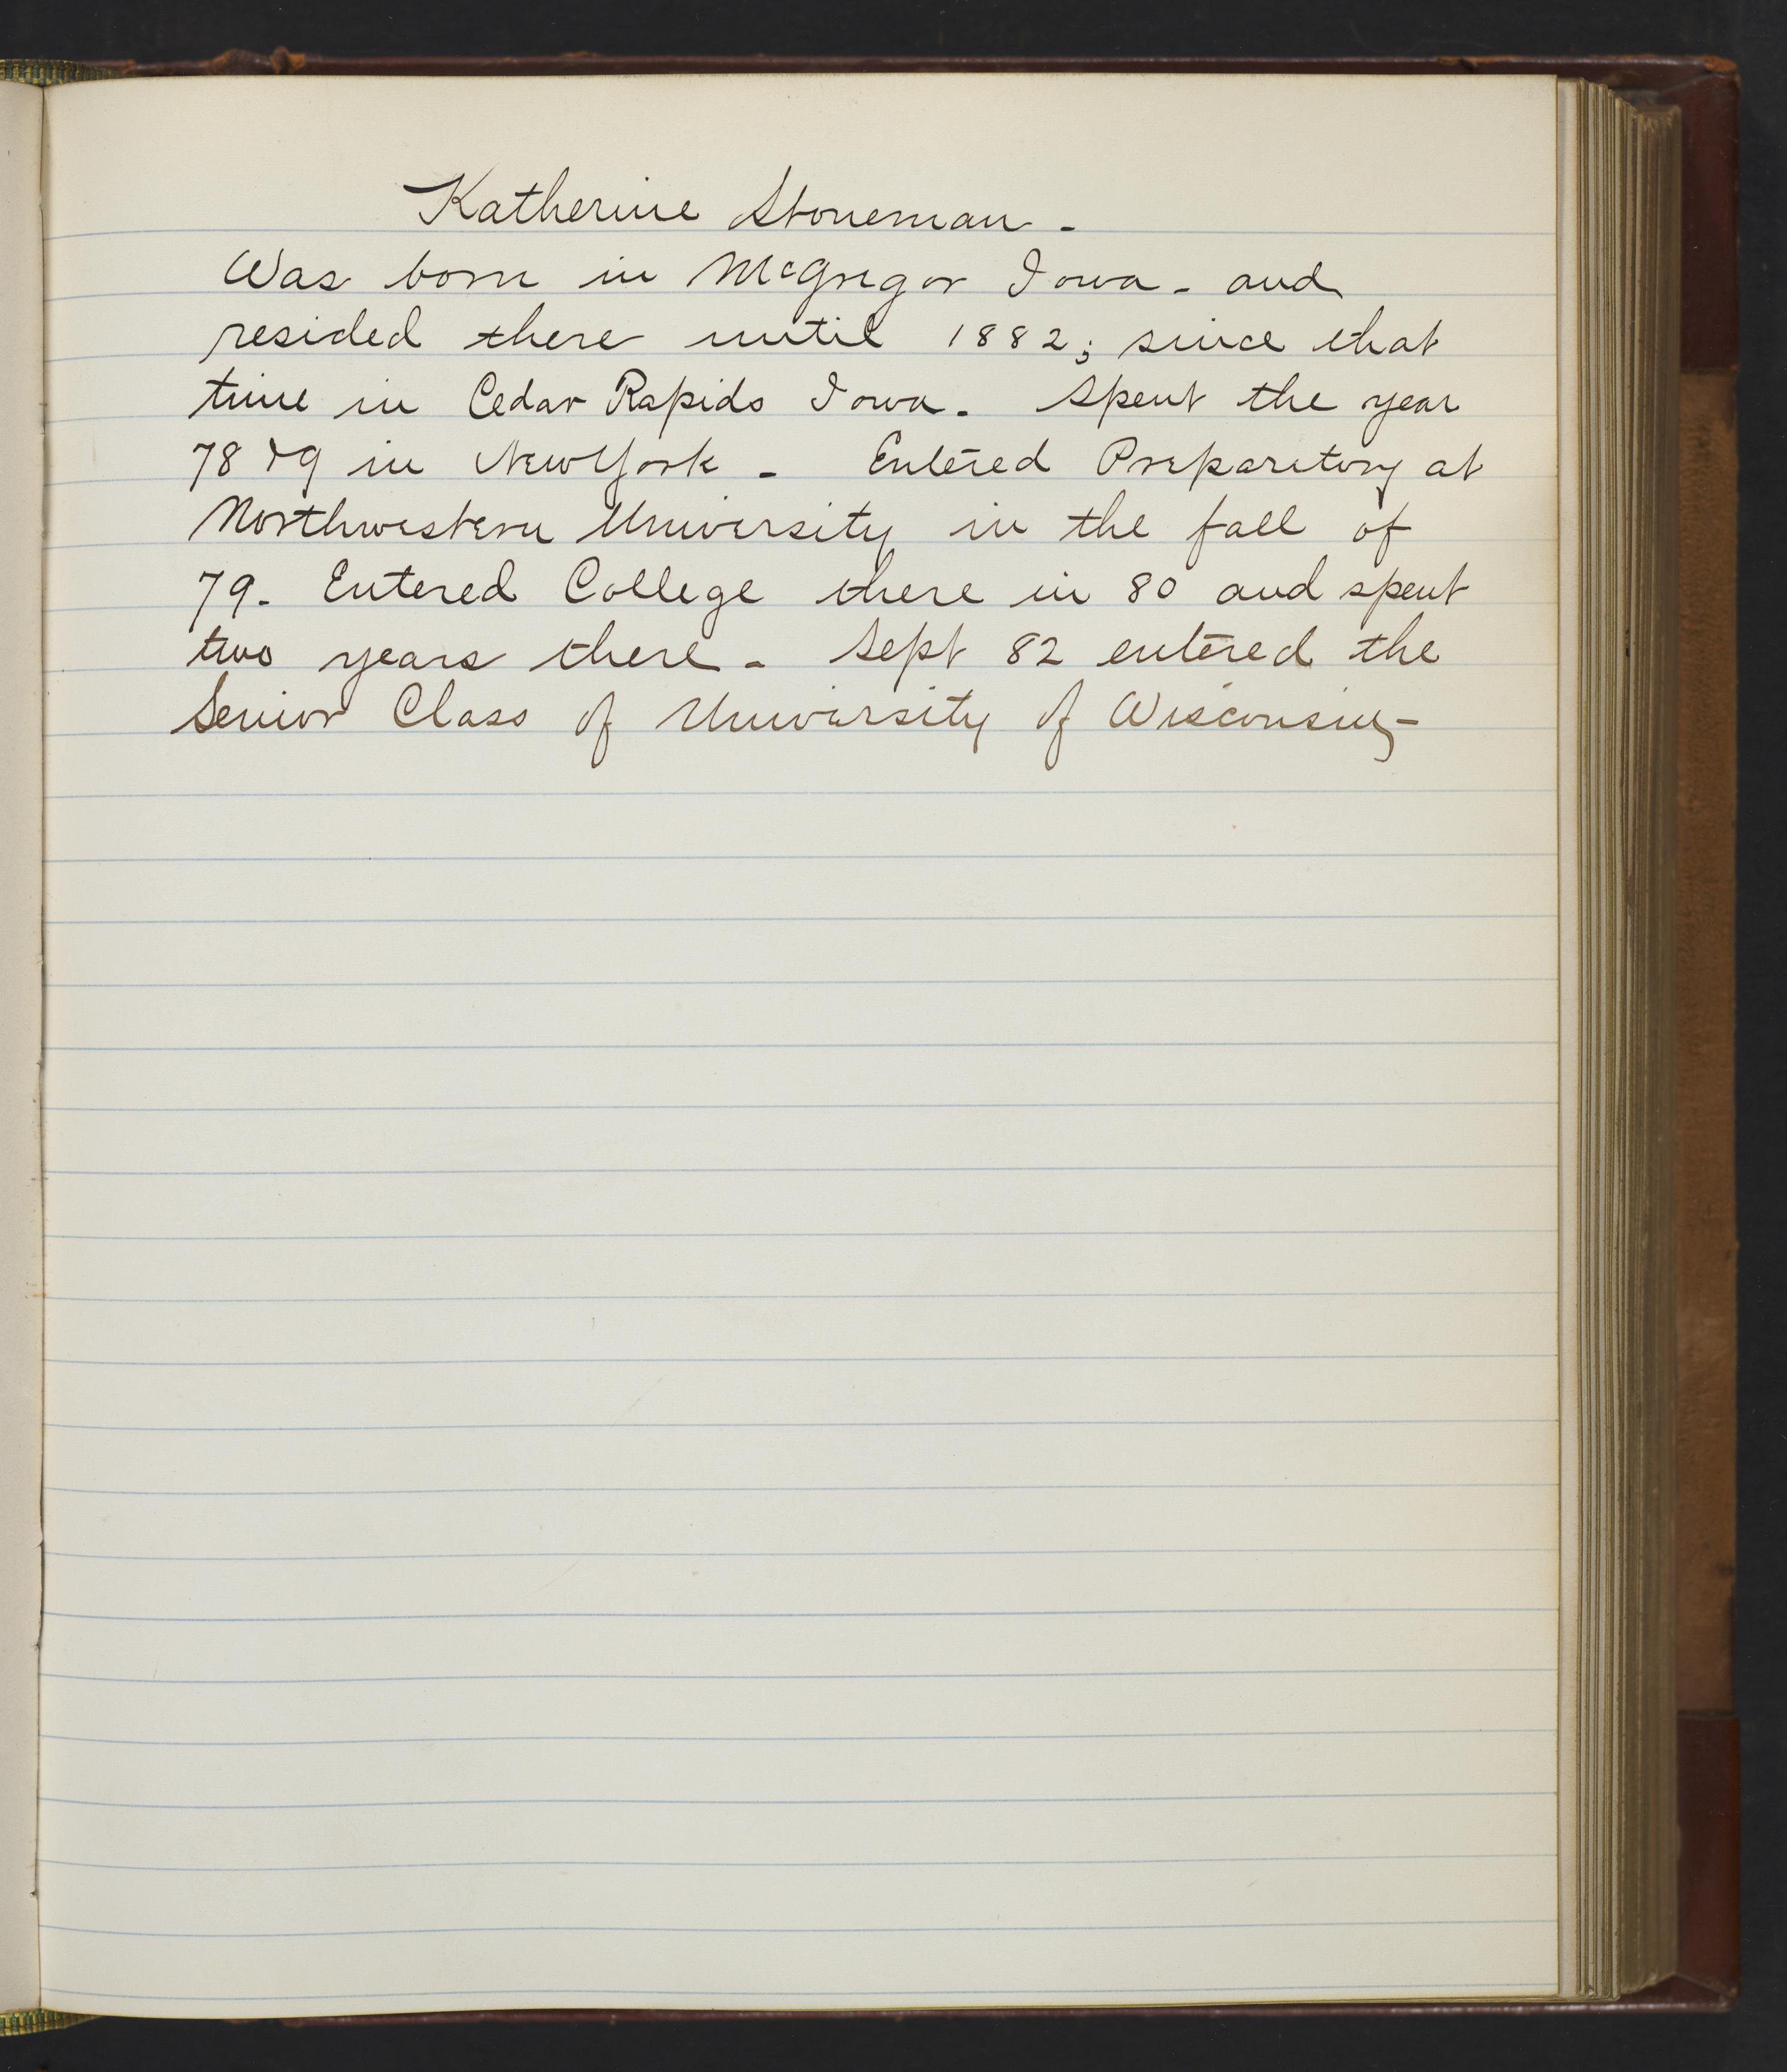 Katherine Stoneman -
Was born in McGregor Iowa - and
resided there until 1882; since that
time in Cedar Rapids Iowa. Spent the year
78 & 9 in New York - Entered Preparatory at
Northwestern University in the fall of
79. Entered College there in 80 and spent
two years there - Sept 82 entered the
Senior Class of University of Wisconsin -